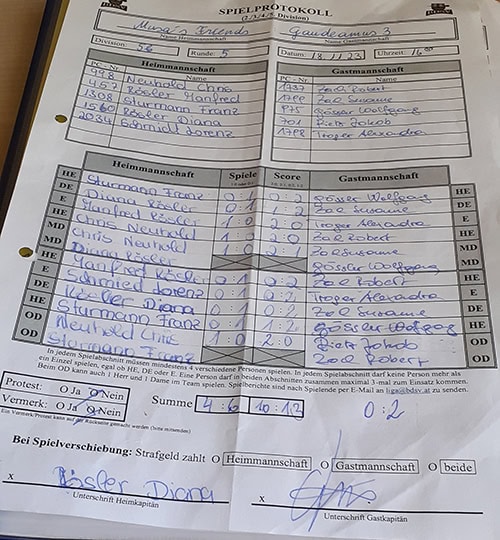 SPIELPROTOKOLL
(2./3./4./5. Division)
Musa's Friends Gaudeamus 3
Name Heimmannschaft Name Gastmannschaft
Division: 5b Runde: 5 Datum: 18.11.23 Uhrzeit: 16 00
Heimmannschaft Gastmannschaft
PC - Nr. Name PC - Nr. Name
998 Neuhold Chris 1737 Zael Robert
457 Rösler Manfred Zael Susanne
1308 Sturmann Franz 975 Gösser Wolfgang
1560 Rösler Diana 701 Jakob
2034 Schmidt Lorenz 1798 Troger Alexandra
Heimmannschaft Spiele Score Gastmannschaft
HE Sturmann Franz 0 : 1 0 : 2 Gösser Wolfgang HE
DE Diana Rösler 0 : 1 1 : 2 Zael Susanne DE
E Manfred Rösler 1 : 0 2 : 0 Troger Alexandra E
HE Chris Neuhold 1 : 0 2 : 0 Zael Robert HE
MD Chris Neuhold 1 : 0 2 : 1 Zael Susanne MD
MD Diana Rösler Gössler Wolfgang MD
HE Manfred Rösler 0 : 1 0 : 2 Zael Robert HE
E Schmied Lorenz 0 : 1 0 : 2 Troger Alexandra E
DE Rösler Diana 0 : 1 0 : 2 Zael Susanne DE
HE Sturmann Franz 0 : 1 1 : 2 Gössler Wolfgang HE
OD Neuhold Chris 1 : 0 2 : 0 Jakob OD
OD Sturmann Franz Zael Robert OD
In jedem Spielabschnitt müssen mindestens 4 verschiedene Personen spielen. In jedem Spielabschnitt darf keine Person mehr als
ein Einzel spielen, egal ob HE, DE oder E. Eine Person darf in beiden Abschnitten zusammen maximal 3-mal zum Einsatz kommen.
Beim OD kann auch 1 Herr und 1 Dame im Team spielen. Spielberichte sind nach Spielende per E-Mail an liga@bdsv.at zu senden.
Protest: O Ja O Nein
Vermerk: O Ja O Nein Summe 4 : 6 10 : 12 0 : 2
Ein Vermerk/Protest kann auf der Rückseite gemacht werden (bitte mitsenden)
Bei Spielverschiebung: Strafgeld zahlt O Heimmannschaft O Gastmannschaft O beide
x Rösler Diana x
Unterschrift Heimkapitän Unterschrift Gastkapitän